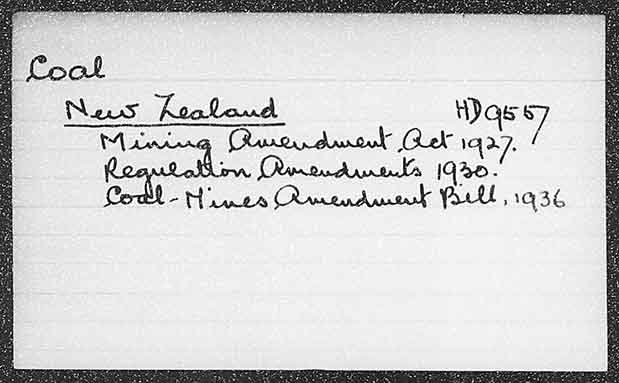 Coal
New Zealand HD9557
Mining Amendment Act 1927.
Regulation Amendments 1930.
Coal-Mines Amendment Bill, 1936